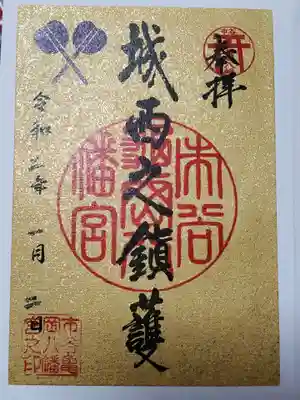 奉拝
城西之鎮護
市谷
龜岡八
幡宮
令和三年一月二日
市谷亀
岡八幡
宮之印